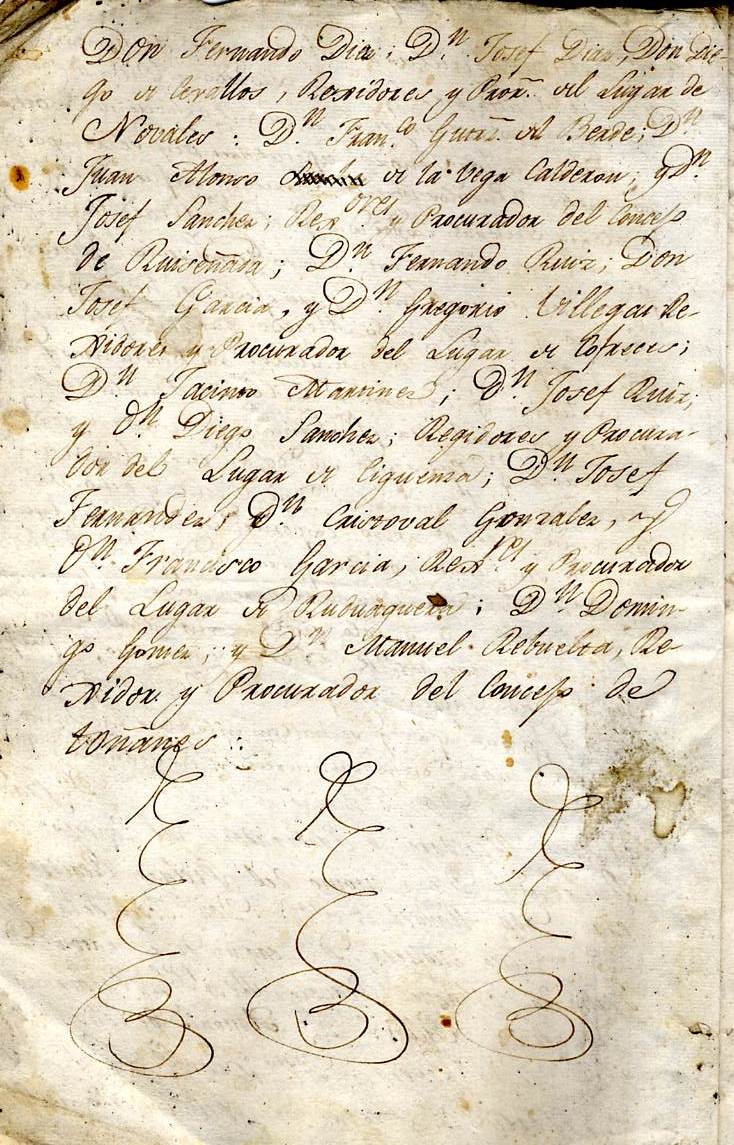 Don Fernando Diaz; D.n Josef Diaz, Don Die-
go de Cevallos, Rexidores y Pror. del Lugar de
Novales: D.n Fran.co Gutrz. del Berde; D.n
Juan Alonso de la Vega Calderon; y D.n
Josef Sanchez; Rex.ores y Procurador del Concejo
de Ruiseñada; D.n Fernando Ruiz; Don
Josef Garcia, y D.n Gregorio Villegas Re-
xidores y Procurador del Lugar de Cofreces;
D.n Jacinto Martinez; D.n Josef Ruiz,
y D.n Diego Sanchez; Regidores y Procura-
dor del Lugar de Ciguenza; D.n Josef
Fernandez; D.n Cristoval Gonzalez, y
D.n Francisco Garcia, Rex.res y Procurador
del Lugar de Rudaguera; D.n Domin-
go Gomez, y D.n Manuel Rebuelta, Re-
xidor y Procurador del Concejo de
toñanes :.